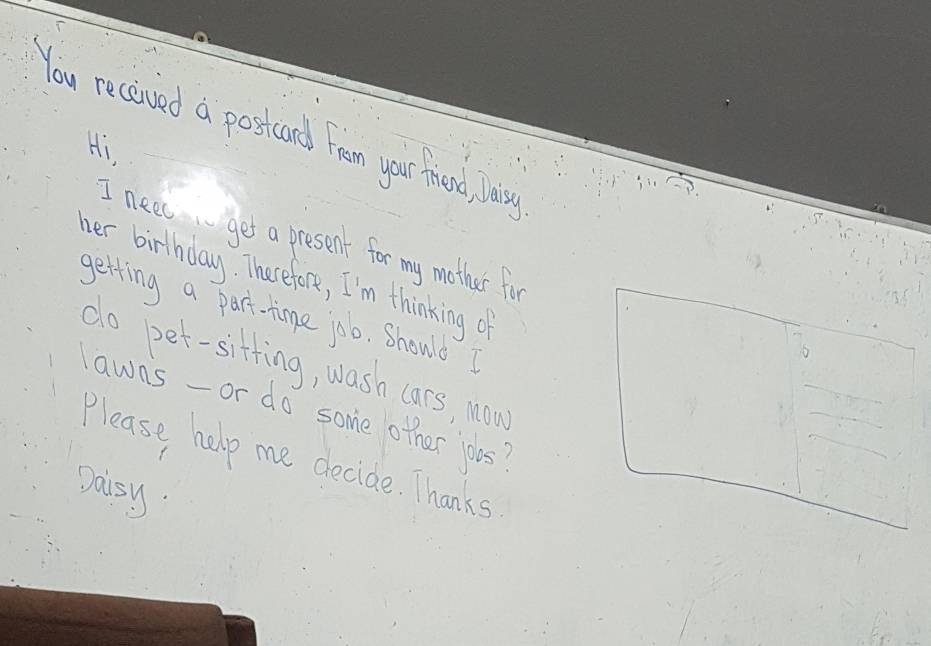 You received a postcard From your friend, Daisy.
Hi,
I need to get a present for my mother for
her birthday. Therefore, I'm thinking of
getting a part-time job. Should I
do pet-sitting, wash cars, mow
lawns – or do some other jobs?
Please, help me decide. Thanks.
Daisy.
To